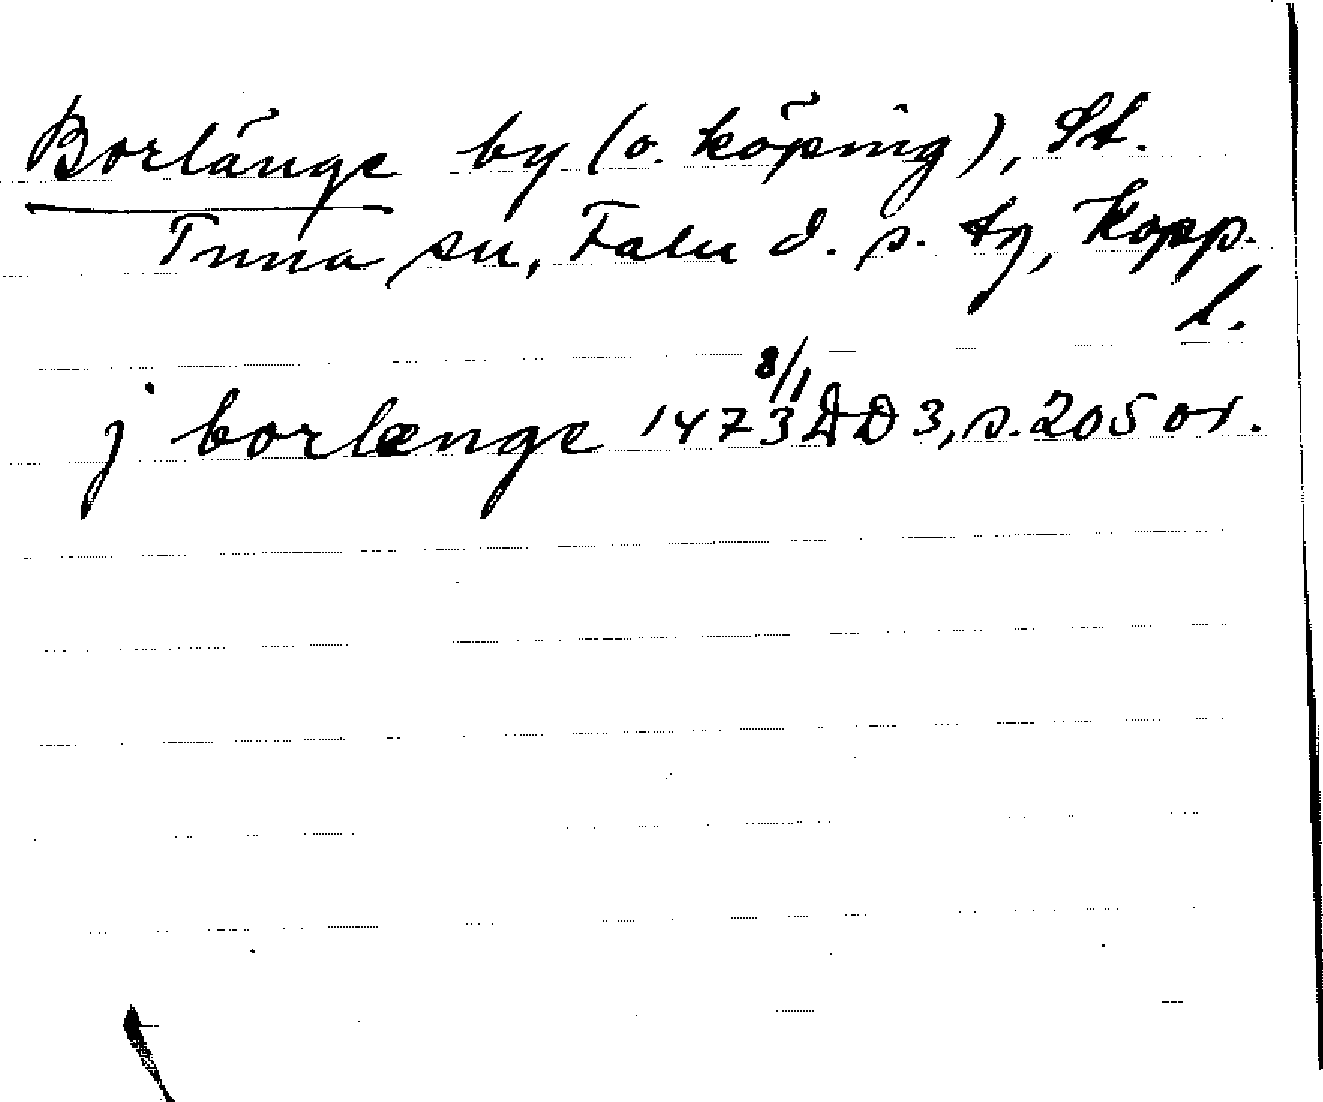 Borlänge by (o. köping), St.
Tuna sn, Falu d. s. tg, Kopp.
l.
j borlænge 1473 8/1 DD 3, s. 205 or.